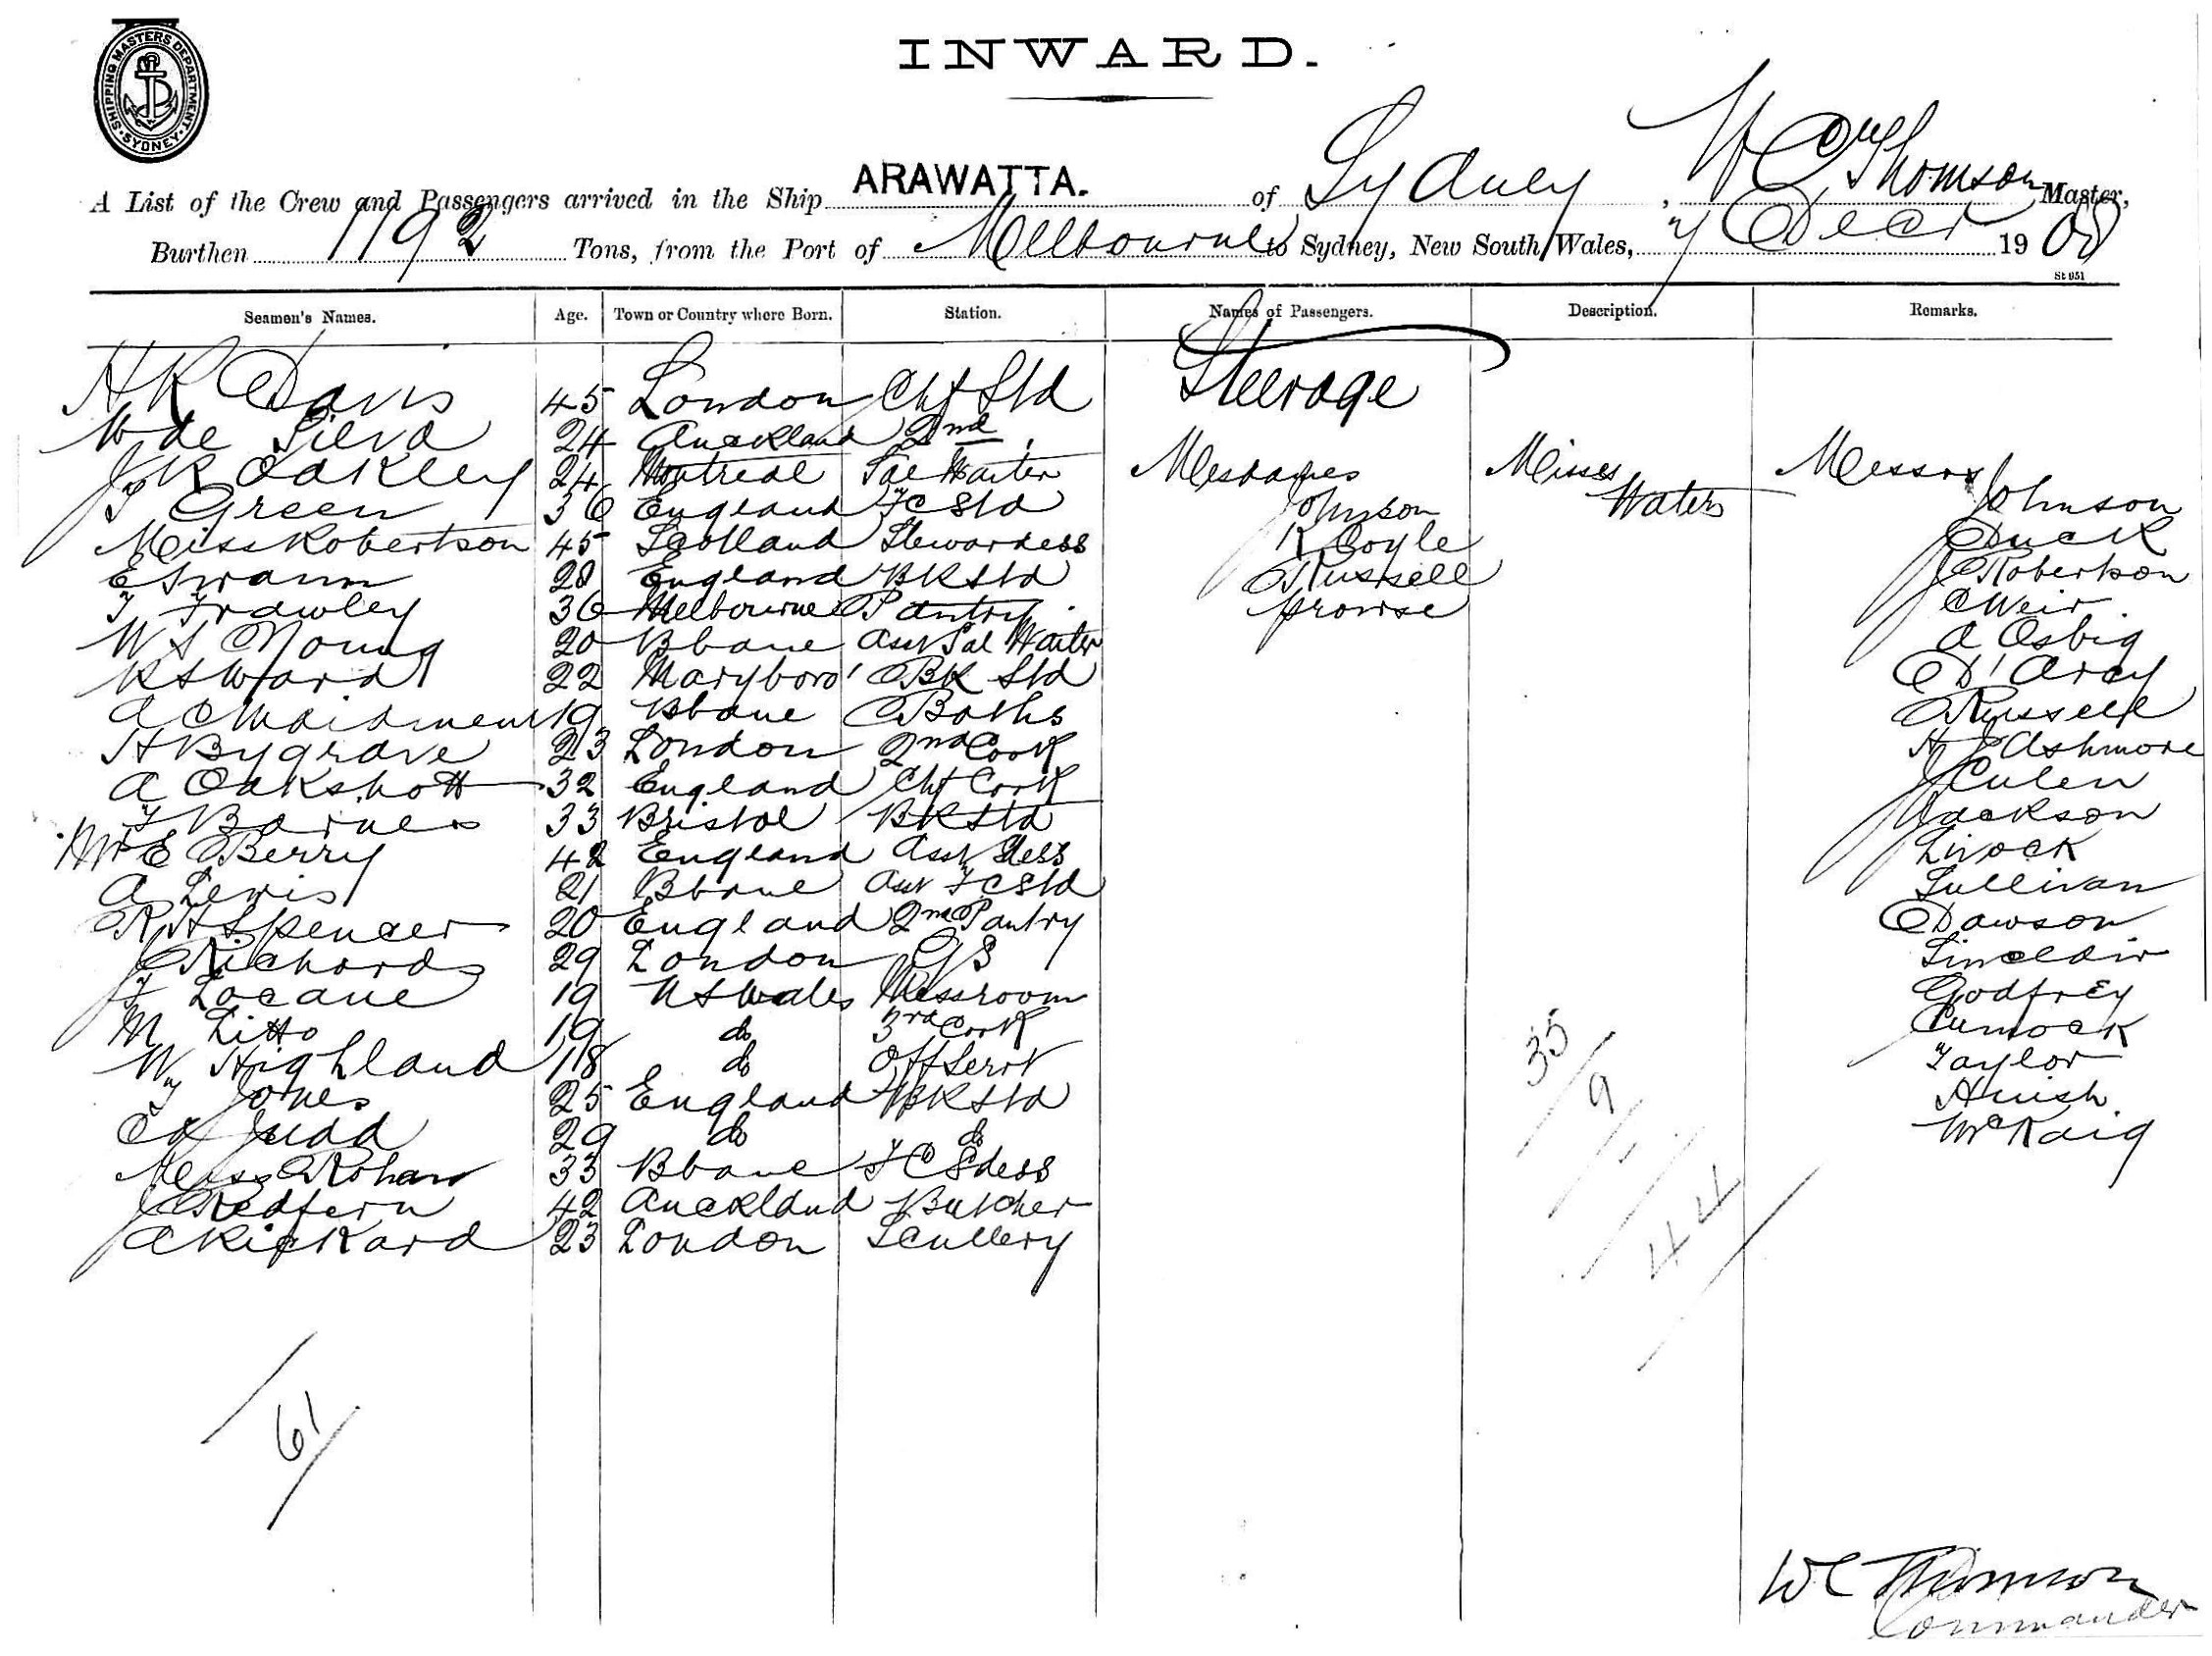 SHIPPING MASTERS DEPARTMENT
SYDNEY
INWARD.
A List of the Crew and Passengers arrived in the Ship ARAWATTA. of Sydney, W C Thomson Master,
Burthen 1192 Tons, from the Port of Melbourne to Sydney, New South Wales, 7 Decr 1908
St 051
Seamen's Names. Age. Town or Country where Born. Station. Names of Passengers. Description. Remarks.
Steerage
H R Davis 45 London Chf Std
W de Silva 24 Auckland 2nd
J R Oakley 24 Montreal Sal Waiter Mesdames Misses Messrs
T Green 36 England FC Std Johnson Waters Johnson
Miss Robertson 45 Scotland Stewardess K Coyle Duck
E Swann 28 England BK Std Russell J Robertson
T Frawley 36 Melbourne Pantry Prowse C Weir
W S Young 20 Bbane Asst Sal Waiter A Osbig
R S Ward 22 Maryboro' BK Std D'Arcy
A C Maidment 19 Bbane Baths Russell
H Bygrave 23 London 2nd Cook H J Ashmore
A Oakshott 32 England Chf Cook J Culen
F Barnes 33 Bristol BK Std Jackson
Mrs E Berry 42 England Asst Stdess Livock
A Lewis 21 Bbane Asst FC Std Sullivan
R H Spencer 20 England 2nd Pantry Dawson
J Richards 29 London G/S Sinclair
F Locane 19 N S Wales Messroom Godfrey
M Litto 19 do 3rd Cook Cumock
W Highland 18 do Off Servt Taylor
F Jones 25 England BK Std Huish
C A Judd 29 do do McKaig
Miss Rohan 33 Bbane FC Stdess
J Redfern 42 Auckland Butcher
A Rickard 23 London Scullery
35
9
44
61
W C Thomson
Commander